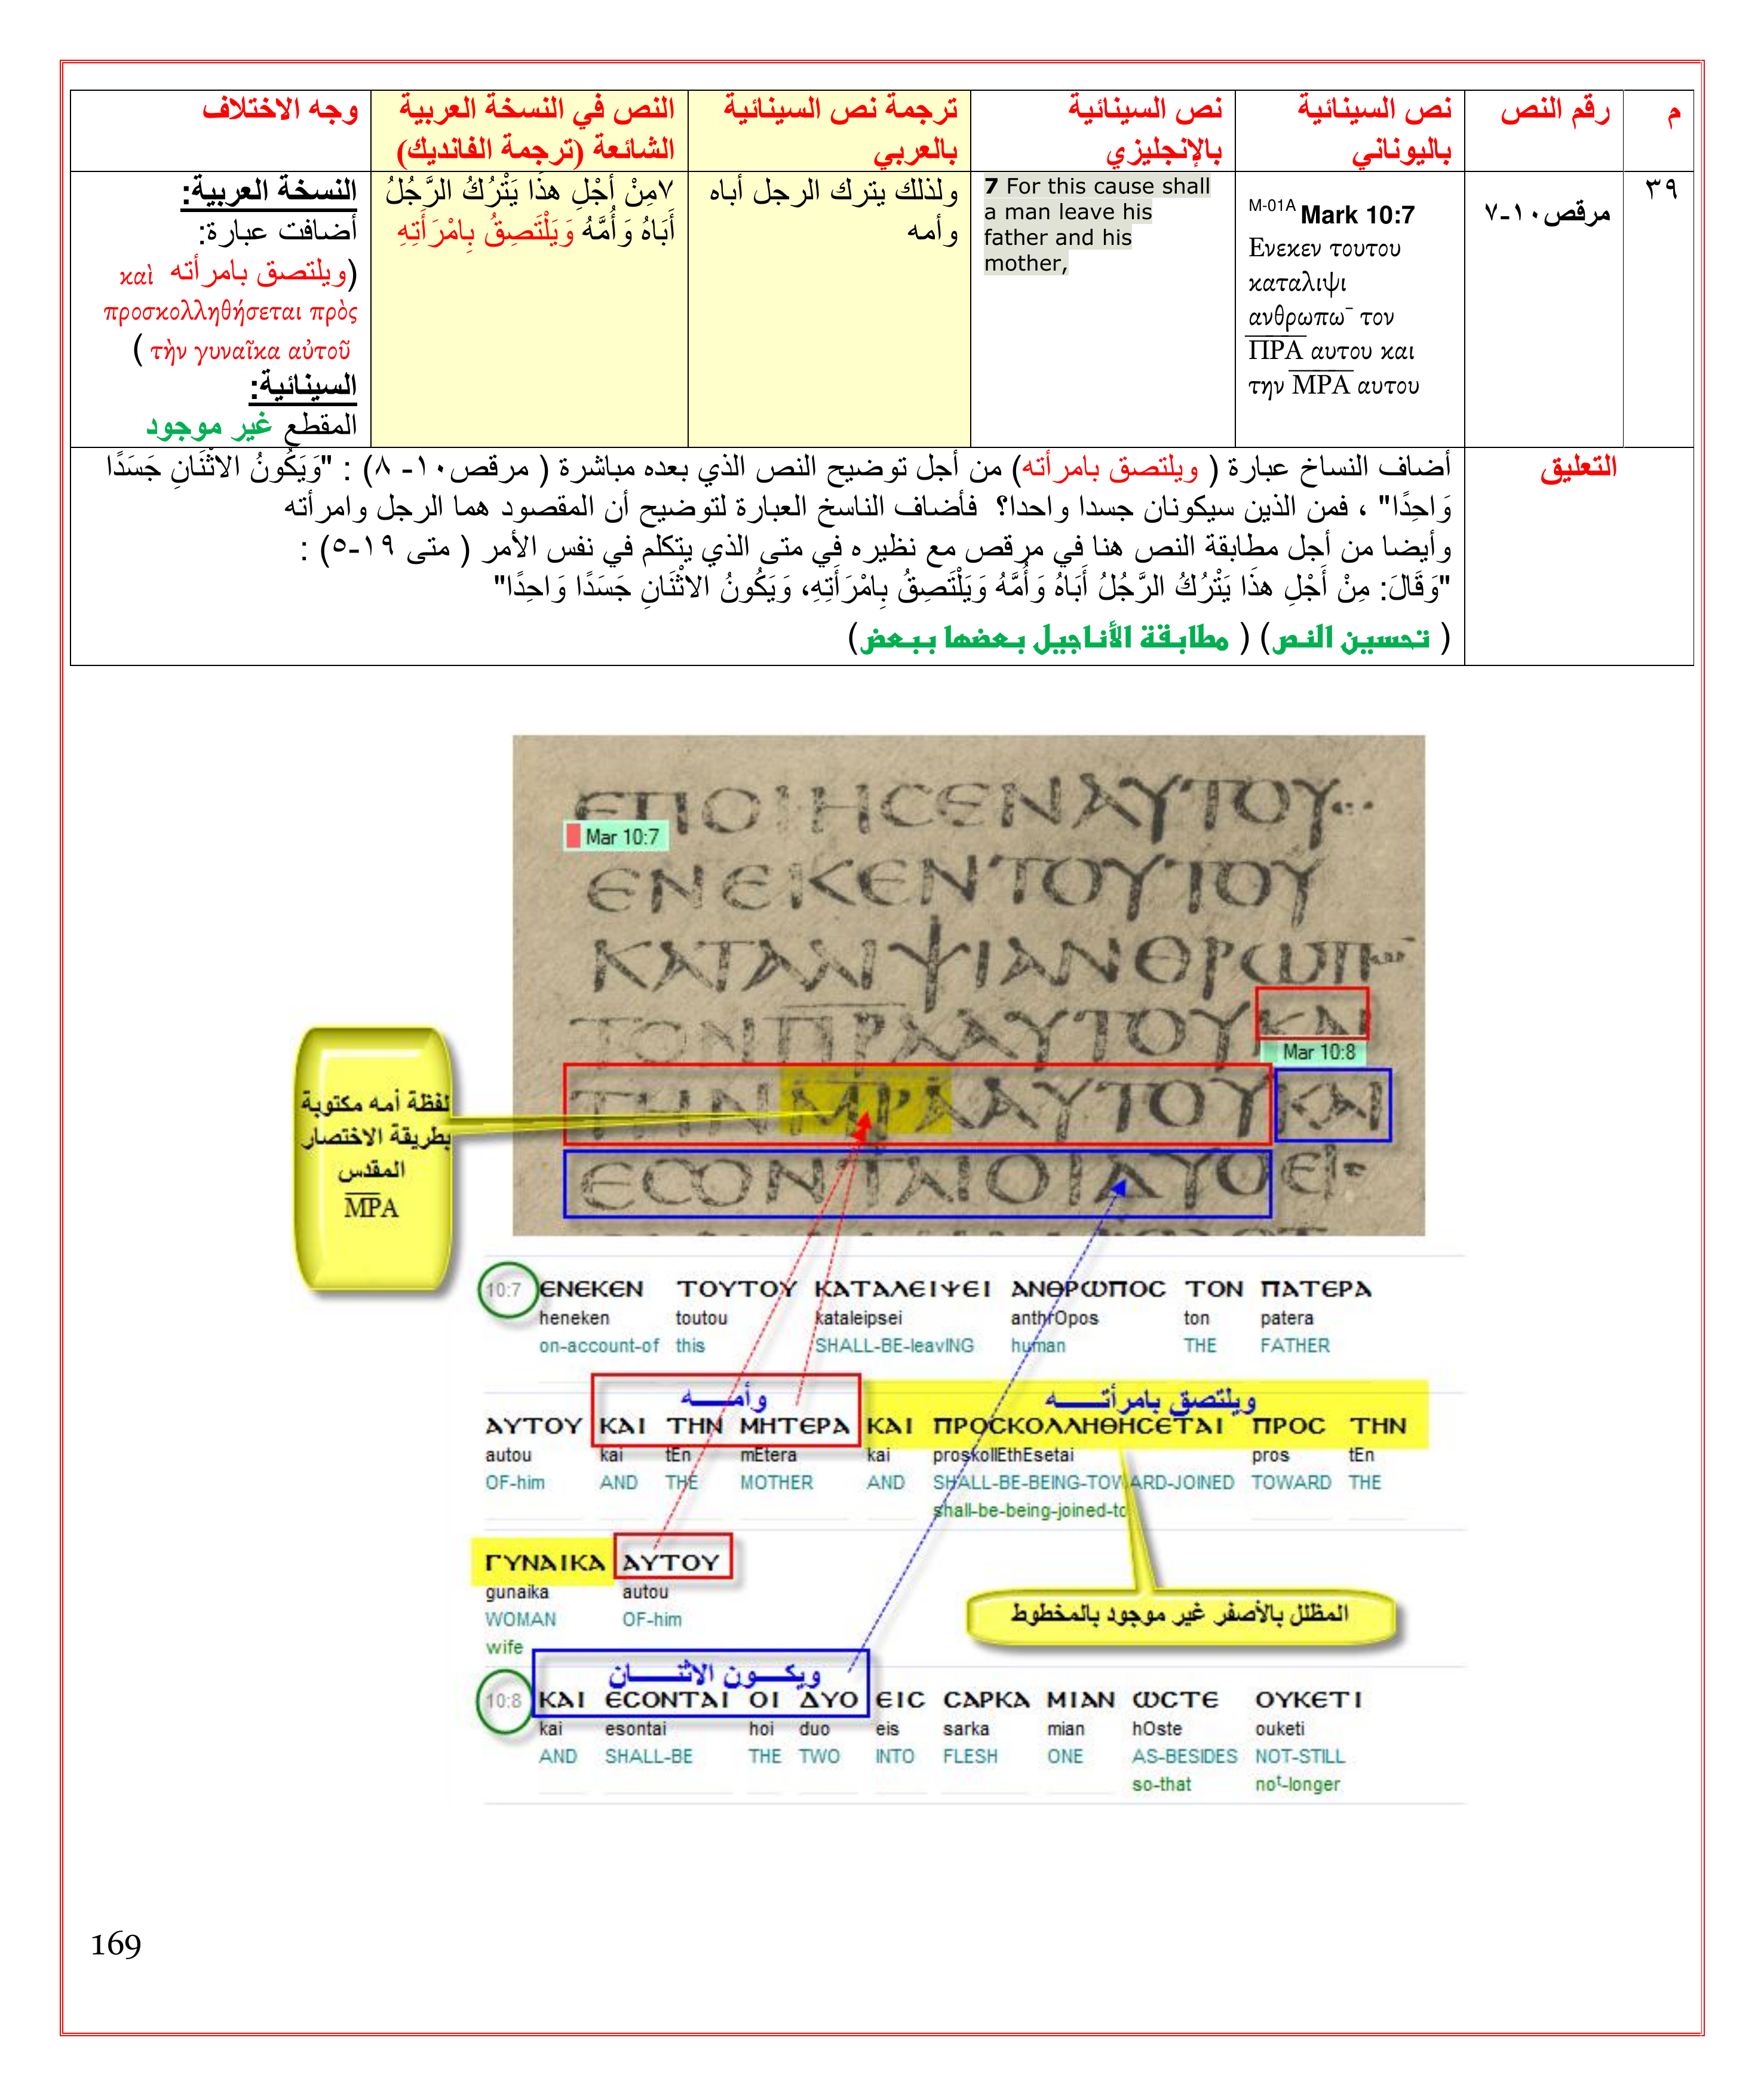 م
رقم النص
نص السينائية
باليوناني
نص السينائية
بالإنجليزي
ترجمة نص السينائية
بالعربي
النص في النسخة العربية
الشائعة (ترجمة الفانديك)
وجه الاختلاف
٣٩
مرقص١٠-٧
M-01A Mark 10:7
Ενεκεν τουτου
καταλιψι
ανθρωπω¯ τον
ΠΡΑ αυτου και
την ΜΡΑ αυτου
7 For this cause shall
a man leave his
father and his
mother,
ولذلك يترك الرجل أباه
وأمه
٧مِنْ أَجْلِ هذَا يَتْرُكُ الرَّجُلُ
أَبَاهُ وَأُمَّهُ وَيَلْتَصِقُ بِامْرَأَتِهِ
النسخة العربية:
أضافت عبارة:
(ويلتصق بامرأته καὶ
προσκολληθήσεται πρὸς
τὴν γυναῖκα αὐτοῦ )
السينائية:
المقطع غير موجود
التعليق
أضاف النساخ عبارة ( ويلتصق بامرأته) من أجل توضيح النص الذي بعده مباشرة ( مرقص١٠- ٨) : "وَيَكُونُ الاثْنَانِ جَسَدًا
وَاحِدًا" ، فمن الذين سيكونان جسدا واحدا؟ فأضاف الناسخ العبارة لتوضيح أن المقصود هما الرجل وامرأته
وأيضا من أجل مطابقة النص هنا في مرقص مع نظيره في متى الذي يتكلم في نفس الأمر ( متى ١٩-٥) :
"وَقَالَ: مِنْ أَجْلِ هذَا يَتْرُكُ الرَّجُلُ أَبَاهُ وَأُمَّهُ وَيَلْتَصِقُ بِامْرَأَتِهِ، وَيَكُونُ الاثْنَانِ جَسَدًا وَاحِدًا"
( تحسين النص) ( مطابقة الأناجيل بعضها ببعض)
ЄΠΟΙΗϹЄΝΑΥΤΟΥ
Mar 10:7
ЄΝЄΚЄΝΤΟΥΤΟΥ
ΚΑΤΑΛΙΨΙΑΝΘΡωΠ
ΤΟΝΠΡΑΑΥΤΟΥΚΑΙ
Mar 10:8
ΤΗΝΜΡΑΑΥΤΟΥΚΑΙ
ЄϹΟΝΤΑΙΟΙΔΥΟЄΙϹ
لفظة أمه مكتوبة
بطريقة الاختصار
المقدس
ΜΡΑ
10:7 ЄΝЄΚЄΝ ΤΟΥΤΟΥ ΚΑΤΑΛЄΙΨЄΙ ΑΝΘΡωΠΟϹ ΤΟΝ ΠΑΤЄΡΑ
heneken toutou kataleipsei anthrOpos ton patera
on-account-of this SHALL-BE-leavING human THE FATHER
وأمــــه
ويلتصق بامرأتــــه
ΑΥΤΟΥ ΚΑΙ ΤΗΝ ΜΗΤЄΡΑ ΚΑΙ ΠΡΟϹΚΟΛΛΗΘΗϹЄΤΑΙ ΠΡΟϹ ΤΗΝ
autou kai tEn mEtera kai proskollEthEsetai pros tEn
OF-him AND THE MOTHER AND SHALL-BE-BEING-TOWARD-JOINED TOWARD THE
shall-be-being-joined-to
ΓΥΝΑΙΚΑ ΑΥΤΟΥ
gunaika autou
WOMAN OF-him
wife
المظلل بالأصفر غير موجود بالمخطوط
ويكــــون الاثنــــــان
10:8 ΚΑΙ ЄϹΟΝΤΑΙ ΟΙ ΔΥΟ ЄΙϹ ϹΑΡΚΑ ΜΙΑΝ ωϹΤЄ ΟΥΚЄΤΙ
kai esontai hoi duo eis sarka mian hOste ouketi
AND SHALL-BE THE TWO INTO FLESH ONE AS-BESIDES NOT-STILL
so-that noᵗ-longer
169